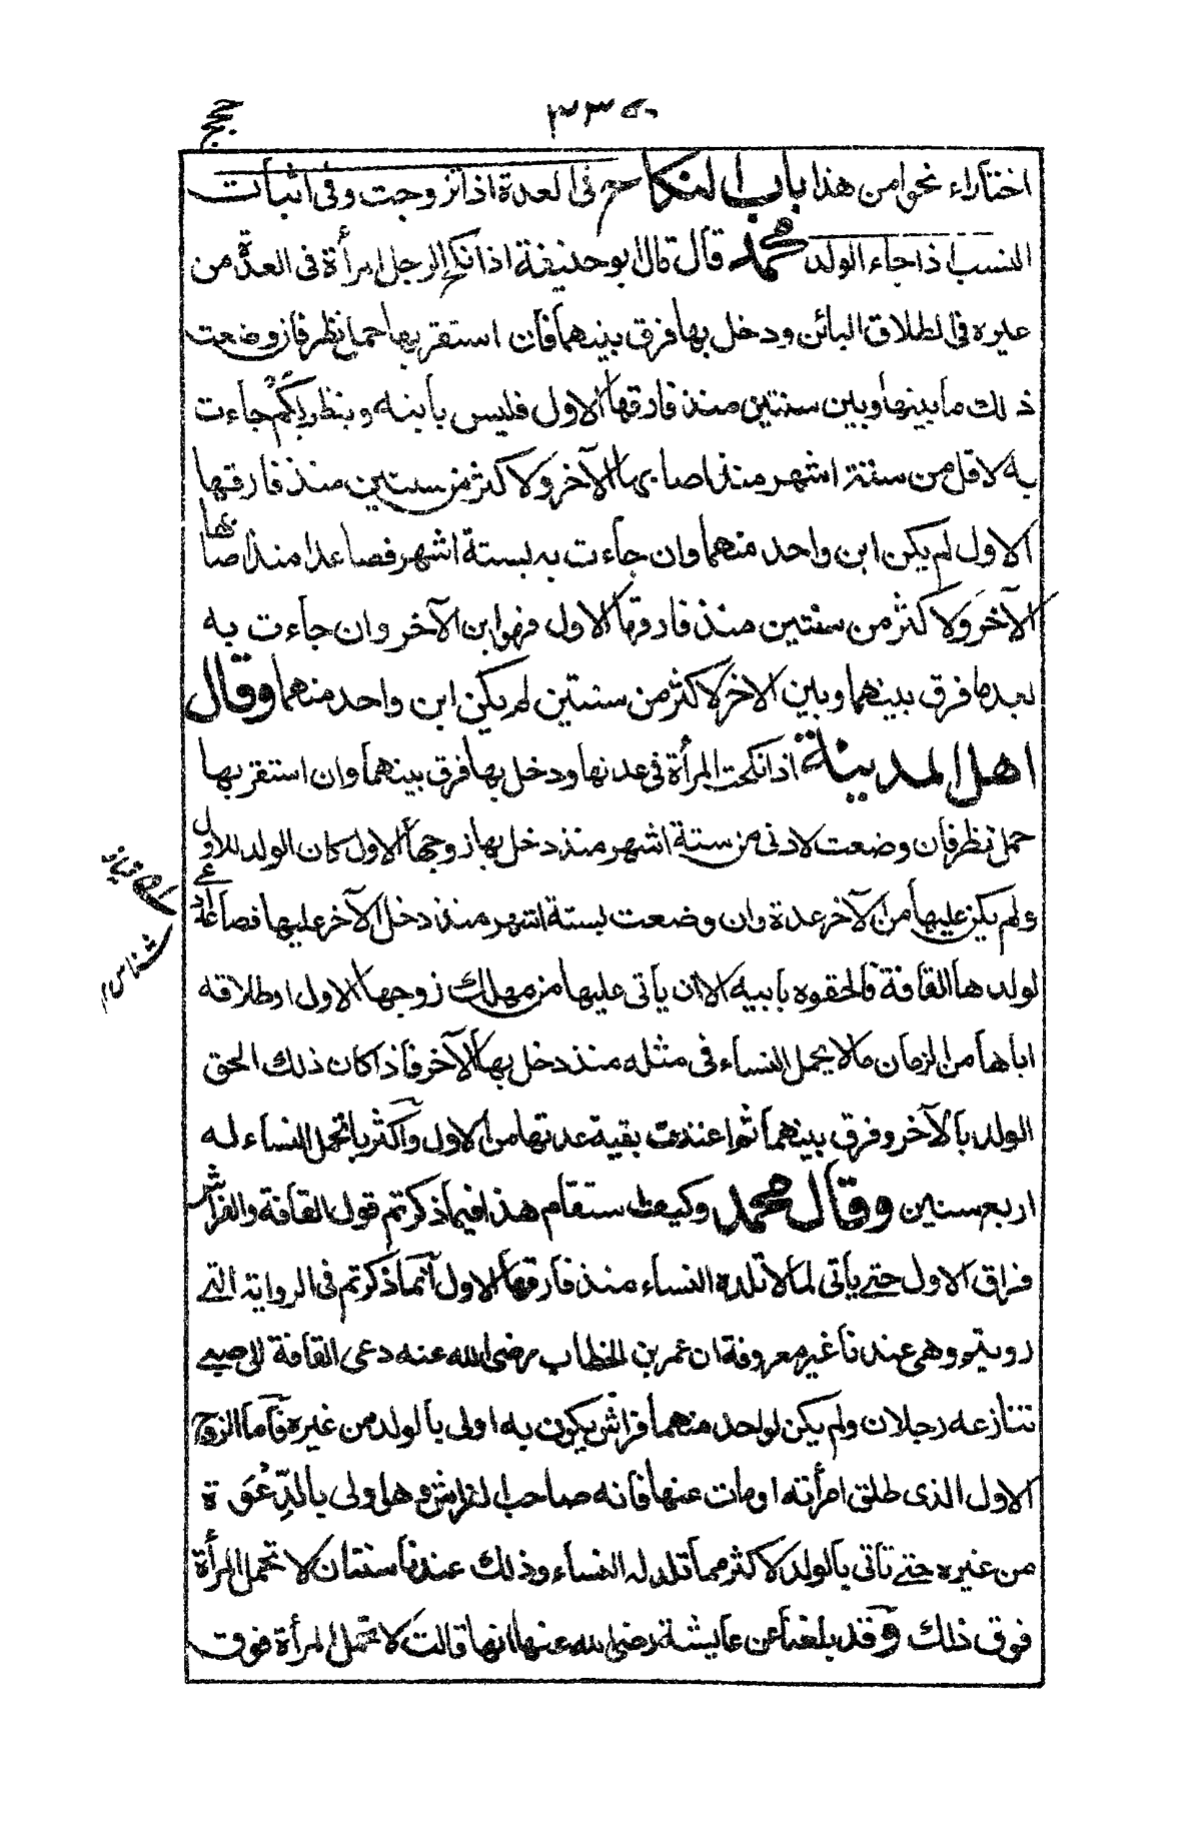 حجج
٢٣٥
اختاراء نحوا من هذا باب النكاح فى العدة اذا تزوجت وفى اثبات
النسب اذا جاء الولد محمد قال قال ابو حنيفة اذا نكح الرجل امرأة فى العدّة من
غيره فى الطلاق البائن ودخل بها فرق بينهما فان استقر بها حمل نظر فان وضعت
ذلك ما بينها وبين سنتين منذ فارقها الاول فليس بابنه وينظر لكم جاءت
به لاقل من ستة اشهر منذ اصابها الآخر ولاكثر من سنتين منذ فارقها
الاول لم يكن ابن واحد منهما وان جاءت به لستة اشهر فصاعدا منذ اصابها
الآخر ولاكثر من سنتين منذ فارقها الاول فهو ابن الآخر وان جاءت به
بعد ما فرق بينهما وبين الاخر لاكثر من سنتين لم يكن ابن واحد منهما وقال
اهل المدينة اذا نكحت المرأة فى عدتها ودخل بها فرق بينهما وان استقر بها
حمل نظر فان وضعت لادنى من ستة اشهر منذ دخل بها زوجها الاول كان الولد للاول
ولم يكن عليها من الآخر عدة وان وضعت لستة اشهر منذ دخل الآخر عليها فصاعدا دعى
لولدها القافة فالحقوه بابيه الا ان يأتى عليها من مهلك زوجها الاول او طلاقه
اياها من الزمان ما لا يحمل النساء فى مثله منذ دخل بها الآخر فاذا كان ذلك الحق
الولد بالآخر وفرق بينهما ثم اعتدت بقية عدتها من الاول واكثر ما تحمل النساء له
اربع سنين وقال محمد وكيف استقام هذا فيما ذكرتم قول القافة والفراش
فراق الاول حتى يأتى لما لا تلده النساء منذ فارقها الاول انما ذكرتم فى الرواية التى
رويتم وهى عندنا غير معروفة ان عمر بن الخطاب رضى الله عنه دعى القافة للصبى
تنازعه رجلان ولم يكن لواحد منهما فراش يكون به اولى بالولد من غيره فاما الزوج
الاول الذى طلق امرأته او مات عنها فانه صاحب الفراش وهو اولى بالدِّعْوَة
من غيره حتى تأتى بالولد لاكثر مما تلد له النساء وذلك عندنا سنتان لا تحمل المرأة
فوق ذلك وقد بلغنا عن عايشة رضى الله عنها انها قالت لا تحمل المرأة فوق
شناس